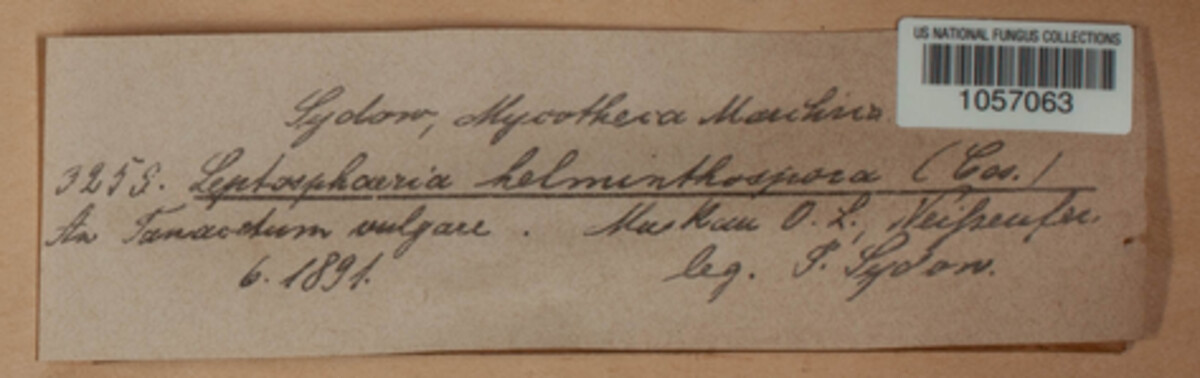 US NATIONAL FUNGUS COLLECTIONS
1057063
Sydow, Mycotheca Marchica
3255. Leptosphaeria helminthospora (Ces.)
An Tanacetum vulgare. Muskau O. L., Neißeufer.
6. 1891.
leg. P. Sydow.